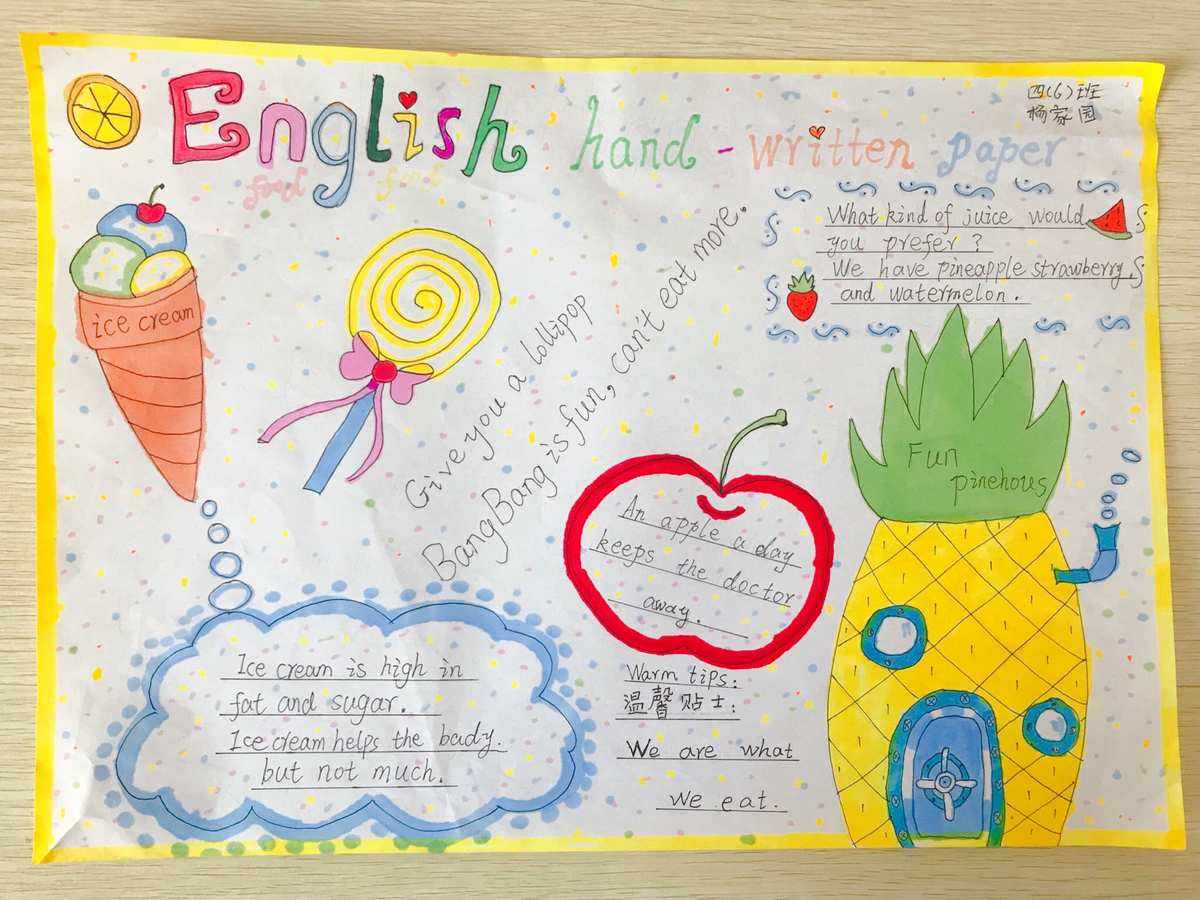 English hand-written paper
food food
四(6)班
杨家园
What kind of juice would
you prefer?
We have pineapple strawberry,
and watermelon.
ice cream
Give you a lollipop
BangBang is fun, can't eat more.
Fun
pinehous
An apple a day
keeps the doctor
away.
Ice cream is high in
fat and sugar.
Ice cream helps the bady.
but not much.
Warm tips:
温馨贴士:
We are what
we eat.